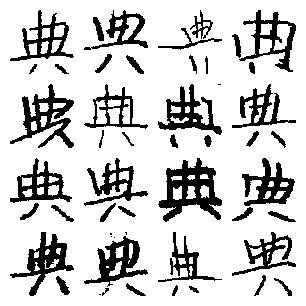 典典典典
典典典典
典典典典
典典典典